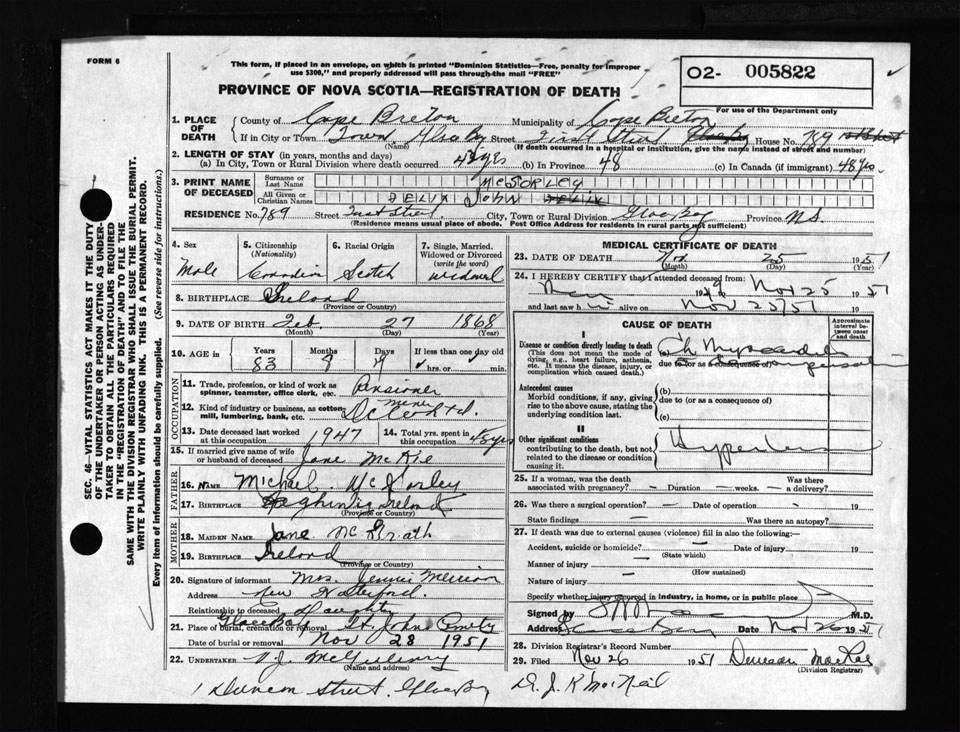 FORM 6
This form, if placed in an envelope, on which is printed "Dominion Statistics—Free, penalty for improper
use $300," and properly addressed will pass through the mail "FREE"
O2- 005822
PROVINCE OF NOVA SCOTIA—REGISTRATION OF DEATH
For use of the Department only
1. PLACE OF DEATH
County of Cape Breton Municipality of Cape Breton
If in City or Town Town Glace Bay Street House No. 789
(Name) (If death occurred in a hospital or institution, give the name instead of street and number)
2. LENGTH OF STAY (in years, months and days)
(a) In City, Town or Rural Division where death occurred 48 yrs (b) In Province 48 (c) In Canada (if immigrant) 48 yrs.
3. PRINT NAME OF DECEASED
Surname or Last Name McSORLEY
All Given or Christian Names FELIX John
RESIDENCE No. 789 Street City, Town or Rural Division Glace Bay Province N.S.
(Residence means usual place of abode. Post Office Address for residents in rural parts not sufficient)
4. Sex Male
5. Citizenship (Nationality) Canadian
6. Racial Origin Scotch
7. Single, Married, Widowed or Divorced (write the word) widowed
8. BIRTHPLACE Ireland
(Province or Country)
9. DATE OF BIRTH Feb. 27 1868
(Month) (Day) (Year)
10. AGE in Years 83 Months 9 Days If less than one day old
hrs. or min.
OCCUPATION
11. Trade, profession, or kind of work as spinner, teamster, office clerk, etc. Pensioner
12. Kind of industry or business, as cotton mill, lumbering, bank, etc. miner
13. Date deceased last worked at this occupation 1947
14. Total yrs. spent in this occupation 45 yrs
15. If married give name of wife or husband of deceased Jane McKie
FATHER
16. Name Michael McSorley
17. BIRTHPLACE Ireland
(Province or Country)
MOTHER
18. MAIDEN NAME Jane McGrath
19. BIRTHPLACE Ireland
(Province or Country)
20. Signature of informant Mrs. Jennie
Address New Waterford.
Relationship to deceased Daughter
21. Place of burial, cremation or removal Glace Bay St. John
Date of burial or removal Nov 28 1951
22. UNDERTAKER V.J. McGillivray
(Name and address)
1 Duncan Street. Glace Bay
MEDICAL CERTIFICATE OF DEATH
23. DATE OF DEATH Nov 25 1951
(Month) (Day) (Year)
24. I HEREBY CERTIFY that I attended deceased from
19 Nov 25 1951
and last saw h alive on Nov 25/51 19
CAUSE OF DEATH
Approximate interval between onset and death
I
Disease or condition directly leading to death
(This does not mean the mode of dying, e.g., heart failure, asthenia, etc. It means the disease, injury, or complication which caused death.)
(a) Ch
due to (or as a consequence of)
Antecedent causes
Morbid conditions, if any, giving rise to the above cause, stating the underlying condition last.
(b)
due to (or as a consequence of)
(c)
II
Other significant conditions
contributing to the death, but not related to the disease or condition causing it.
25. If a woman, was the death associated with pregnancy? – Duration – weeks. – Was there a delivery?
26. Was there a surgical operation? – Date of operation - 19
State findings Was there an autopsy?
27. If death was due to external causes (violence) fill in also the following:—
Accident, suicide or homicide? – Date of injury 19
(State which)
Manner of injury
(How sustained)
Nature of injury –
Specify whether injury occurred in industry, in home, or in public place
Signed by M.D.
Address Glace Bay Date Nov 26 1951
28. Division Registrar's Record Number
29. Filed Nov 26 1951 Duncan MacRae
(Division Registrar)
Dr. J. K MacNeil
SEC. 46—VITAL STATISTICS ACT MAKES IT THE DUTY
OF THE UNDERTAKER OR PERSON ACTING AS UNDER-
TAKER TO OBTAIN ALL THE PARTICULARS REQUIRED
IN THE "REGISTRATION OF DEATH" AND TO FILE THE
SAME WITH THE DIVISION REGISTRAR WHO SHALL ISSUE THE BURIAL PERMIT.
WRITE PLAINLY WITH UNFADING INK. THIS IS A PERMANENT RECORD.
Every item of information should be carefully supplied. (See reverse side for instructions.)